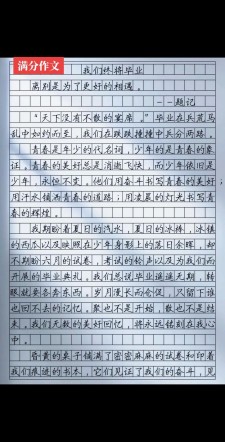 满分作文
我们终将毕业
离别是为了更好的相遇。
——题记
“天下没有不散的宴席。”毕业在兵荒马
乱中如约而至，我们在跌跌撞撞中兵分两路。
青春是年少的代名词，少年的是青春的象
征。青春的美好总是消逝飞快，而少年依旧是
少年，永恒不变。他们用奋斗书写青春的美好；
用汗水铺洒青春的道路；用凌晨的灯光书写青
春的辉煌。
我期盼着夏日的汽水，夏日的冰棒，冰镇
的西瓜以及映照在少年身形上的落日余晖，却
不期盼六月的试卷，考试的铃声以及为我们而
开展的毕业典礼。我们总说毕业遥遥无期，转
眼就要各奔东西。岁月漫长而仓促，只留下谁
也回不去的记忆。聚也不是开始，散也不是结
束。我们无数的美好回忆，将永远铭刻在我心
中。
昏黄的桌子铺满了密密麻麻的试卷和印着
我们痕迹的书本，它们见证了我们的奋斗，见